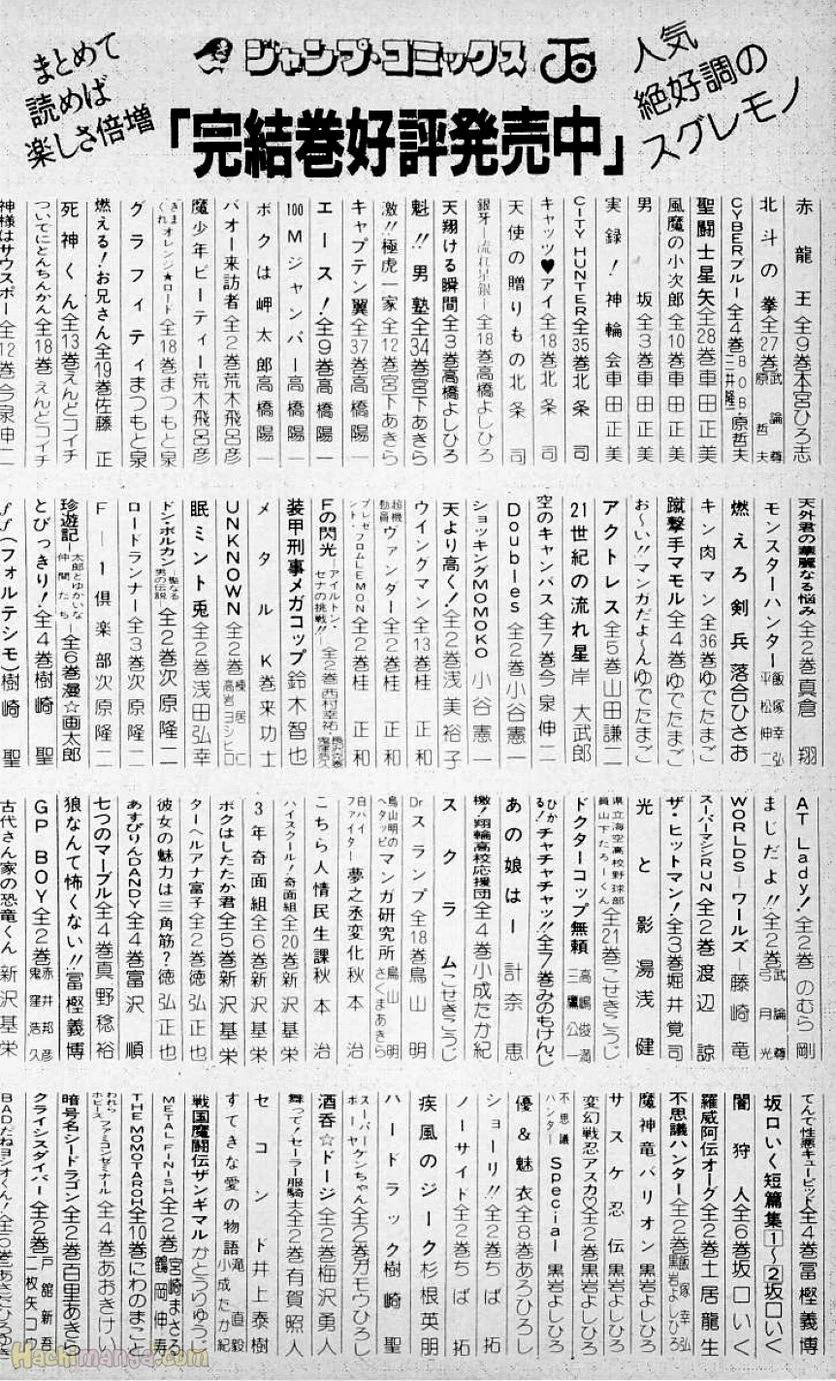 まとめて
読めば
楽しさ倍増
ジャンプ・コミックス
人気
絶好調の
スグレモノ
「完結巻好評発売中」
赤龍王全9巻本宮ひろ志
北斗の拳全27巻武論尊 原哲夫
CYBERブルー全4巻BOB・原哲夫 三井隆一
聖闘士星矢全28巻車田正美
風魔の小次郎全10巻車田正美
男坂全3巻車田正美
実録!神輪会車田正美
CITY HUNTER全35巻北条司
キャッツ♥アイ全18巻北条司
天使の贈りもの北条司
銀牙―流れ星銀―全18巻高橋よしひろ
天翔ける瞬間全3巻高橋よしひろ
魁!!男塾全34巻宮下あきら
激!!極虎一家全12巻宮下あきら
キャプテン翼全37巻高橋陽一
エース!全9巻高橋陽一
100Mジャンパー高橋陽一
ボクは岬太郎高橋陽一
バオー来訪者全2巻荒木飛呂彦
魔少年ビーティー荒木飛呂彦
きまぐれオレンジ★ロード全18巻まつもと泉
グラフィティまつもと泉
燃える!お兄さん全19巻佐藤正
死神くん全13巻えんどコイチ
ついでにとんちんかん全18巻えんどコイチ
神様はサウスポー全12巻今泉伸二
天外君の華麗なる悩み全2巻真倉翔
モンスターハンター飯塚幸弘 平松伸二
燃えろ剣兵落合ひさお
キン肉マン全36巻ゆでたまご
蹴撃手マモル全4巻ゆでたまご
お~い!!マンガだよ~んゆでたまご
アクトレス全5巻山田謙二
21世紀の流れ星岸大武郎
空のキャンバス全7巻今泉伸二
Doubles全2巻小谷憲一
ショッキングMOMOKO小谷憲一
天より高く!全2巻浅美裕子
ウイングマン全13巻桂正和
超機動員ヴァンダー全2巻桂正和
プレゼント・フロムLEMON全2巻桂正和
Fの閃光アイルトン・セナの挑戦!!全2巻西村幸祐・鬼窪浩久
装甲刑事メガコップ鈴木智也
メタルK巻来功士
UNKNOWN全2巻横居仁 高岩ヨシヒロ
眠ミント兎全2巻浅田弘幸
ドン・ボルカン―聖なる男の伝説―全2巻次原隆二
ロードランナー全3巻次原隆二
F―1倶楽部次原隆二
珍遊記―太郎とゆかいな仲間たち―全6巻漫☆画太郎
とびっきり!全4巻樹崎聖
ff(フォルテシモ)樹崎聖
AT Lady!全2巻のむら剛
まじだよ!!全2巻武論尊 弓月光
WORLDS―ワールズ―藤崎竜
スーパーマシンRUN全2巻渡辺諒
ザ・ヒットマン!全3巻堀井覚司
光と影湯浅健
県立海空高校野球部員山下たろーくん全21巻こせきこうじ
ドクターコップ無頼高嶋俊満 三鷹公一
ひかる!チャチャチャッ!!全7巻みのもけんじ
あの娘はー計奈恵
檄!翔輪高校応援団全4巻小成たか紀
スクラムこせきこうじ
Drスランプ全18巻鳥山明
鳥山明のヘタッピマンガ研究所鳥山明 さくまあきら
白バイファイター夢之丞変化秋本治
こちら人情民生課秋本治
ハイスクール!奇面組全20巻新沢基栄
3年奇面組全6巻新沢基栄
ボクはしたたか君全5巻新沢基栄
ターヘルアナ富子全2巻徳弘正也
彼女の魅力は三角筋?徳弘正也
あすぴりんDANDY全4巻富沢順
七つのマーブル全4巻真野稔裕
狼なんて怖くない!!冨樫義博
GP BOY全2巻赤井邦彦 鬼窪浩久
古代さん家の恐竜くん新沢基栄
てんで性悪キューピッド全4巻冨樫義博
坂口いく短篇集1~2坂口いく
闇狩人全6巻坂口いく
羅威阿伝オーグ全2巻土居龍生
不思議ハンター全2巻飯塚幸弘 黒岩よしひろ
魔神竜バリオン黒岩よしひろ
サスケ忍伝黒岩よしひろ
変幻戦忍アスカ♡全2巻黒岩よしひろ
不思議ハンターSpecial黒岩よしひろ
優&魅衣全8巻あろひろし
ショーリ!!全2巻ちば拓
ノーサイド全2巻ちば拓
疾風のジーク杉根英朋
ハードラック樹崎聖
スーパーケンちゃんボーヤ全2巻ガモウひろし
酒呑☆ドージ全2巻梅沢勇人
舞って!セーラー服騎士全2巻有賀照人
セコンド井上泰樹
すてきな愛の物語滝直毅 小成たか紀
戦国魔闘伝ザンギマルかとうりゅうじ
METAL FINISH全2巻宮崎まさる 鶴岡伸寿
THE MOMOTAROH全10巻にわのまこと
われらホビーズファミコンゼミナール全4巻あおきけい
暗号名シードラゴン全2巻百里あきら
クライシスダイバー全2巻戸舘新吾 一枚矢コウ
BADだねヨシオくん!全5巻あさだひろゆき
Hachimanga.com